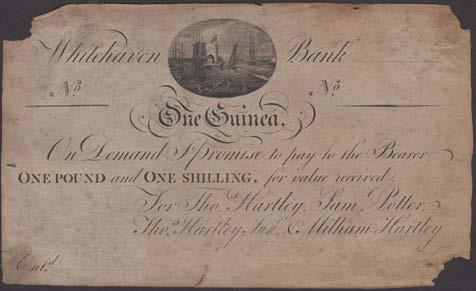 Whitehaven Bank
No. No.
One Guinea.
On Demand I Promise to pay to the Bearer
ONE POUND and ONE SHILLING, for value received.
For Tho.s Hartley, Sam.l Potter
Tho.s Hartley Jun.r & Milham Hartley
Ent.d